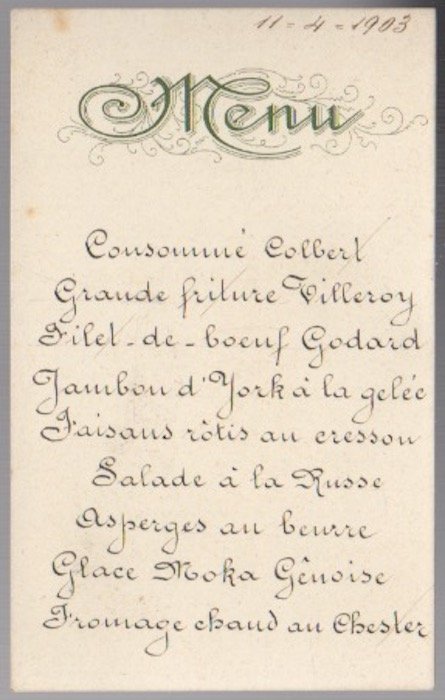 11-4-1903
Menu
Consommé Colbert
Grande friture Villeroy
Filet-de-boeuf Godard
Jambon d'York à la gelée
Faisans rôtis au cresson
Salade à la Russe
Asperges au beurre
Glace Moka Gênoise
Fromage chaud au Chester